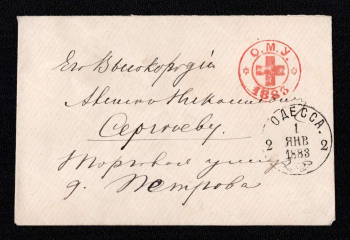 О.М.У.
1883
Его Высокородiю
Николаевичу
Сергѣеву.
ОДЕССА.
1
ЯНВ
1883
2 2
Торговая улица
д. Петрова